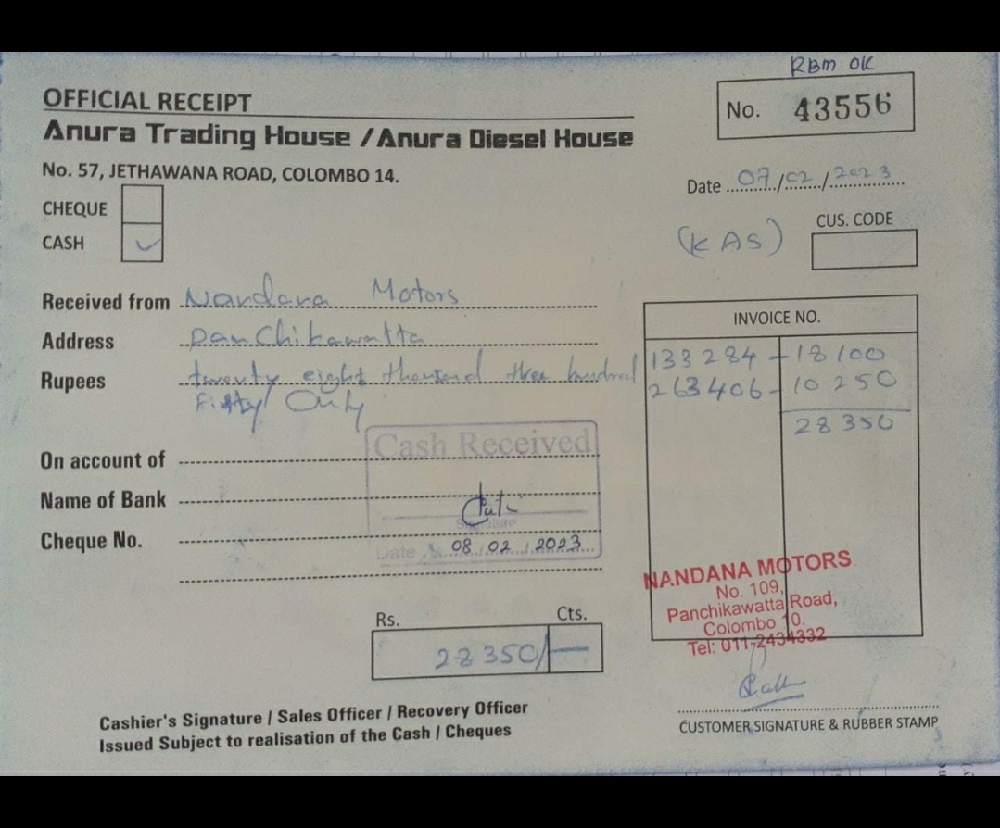 RBM OK
OFFICIAL RECEIPT
No. 43556
Anura Trading House / Anura Diesel House
No. 57, JETHAWANA ROAD, COLOMBO 14.
Date 07/02/2023
CHEQUE
CASH ✓
(KAS)
CUS. CODE
Received from Nandana Motors
Address Panchikawatta
Rupees twenty eight thousand three hundred
Fifty Only
INVOICE NO.
133284 - 18100
263406 - 10250
28350
On account of
Name of Bank
Cheque No.
Cash Received
Signature
Date 08.02.2023
NANDANA MOTORS
No. 109,
Panchikawatta Road,
Colombo 10.
Tel: 011-2434332
Rs. Cts.
28350/—
Cashier's Signature / Sales Officer / Recovery Officer
Issued Subject to realisation of the Cash / Cheques
CUSTOMER SIGNATURE & RUBBER STAMP